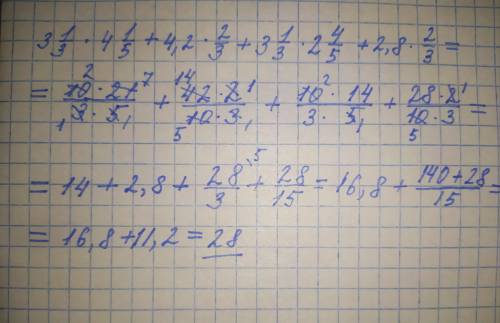 3 1/3 · 4 1/5 + 4,2 · 2/3 + 3 1/3 · 2 4/5 + 2,8 · 2/3 =
= (10 · 21)/(3 · 5) + (42 · 2)/(10 · 3) + (10 · 14)/(3 · 5) + (28 · 2)/(10 · 3) =
= 14 + 2,8 + 28/3 + 28/15 = 16,8 + (140 + 28)/15 =
= 16,8 + 11,2 = 28